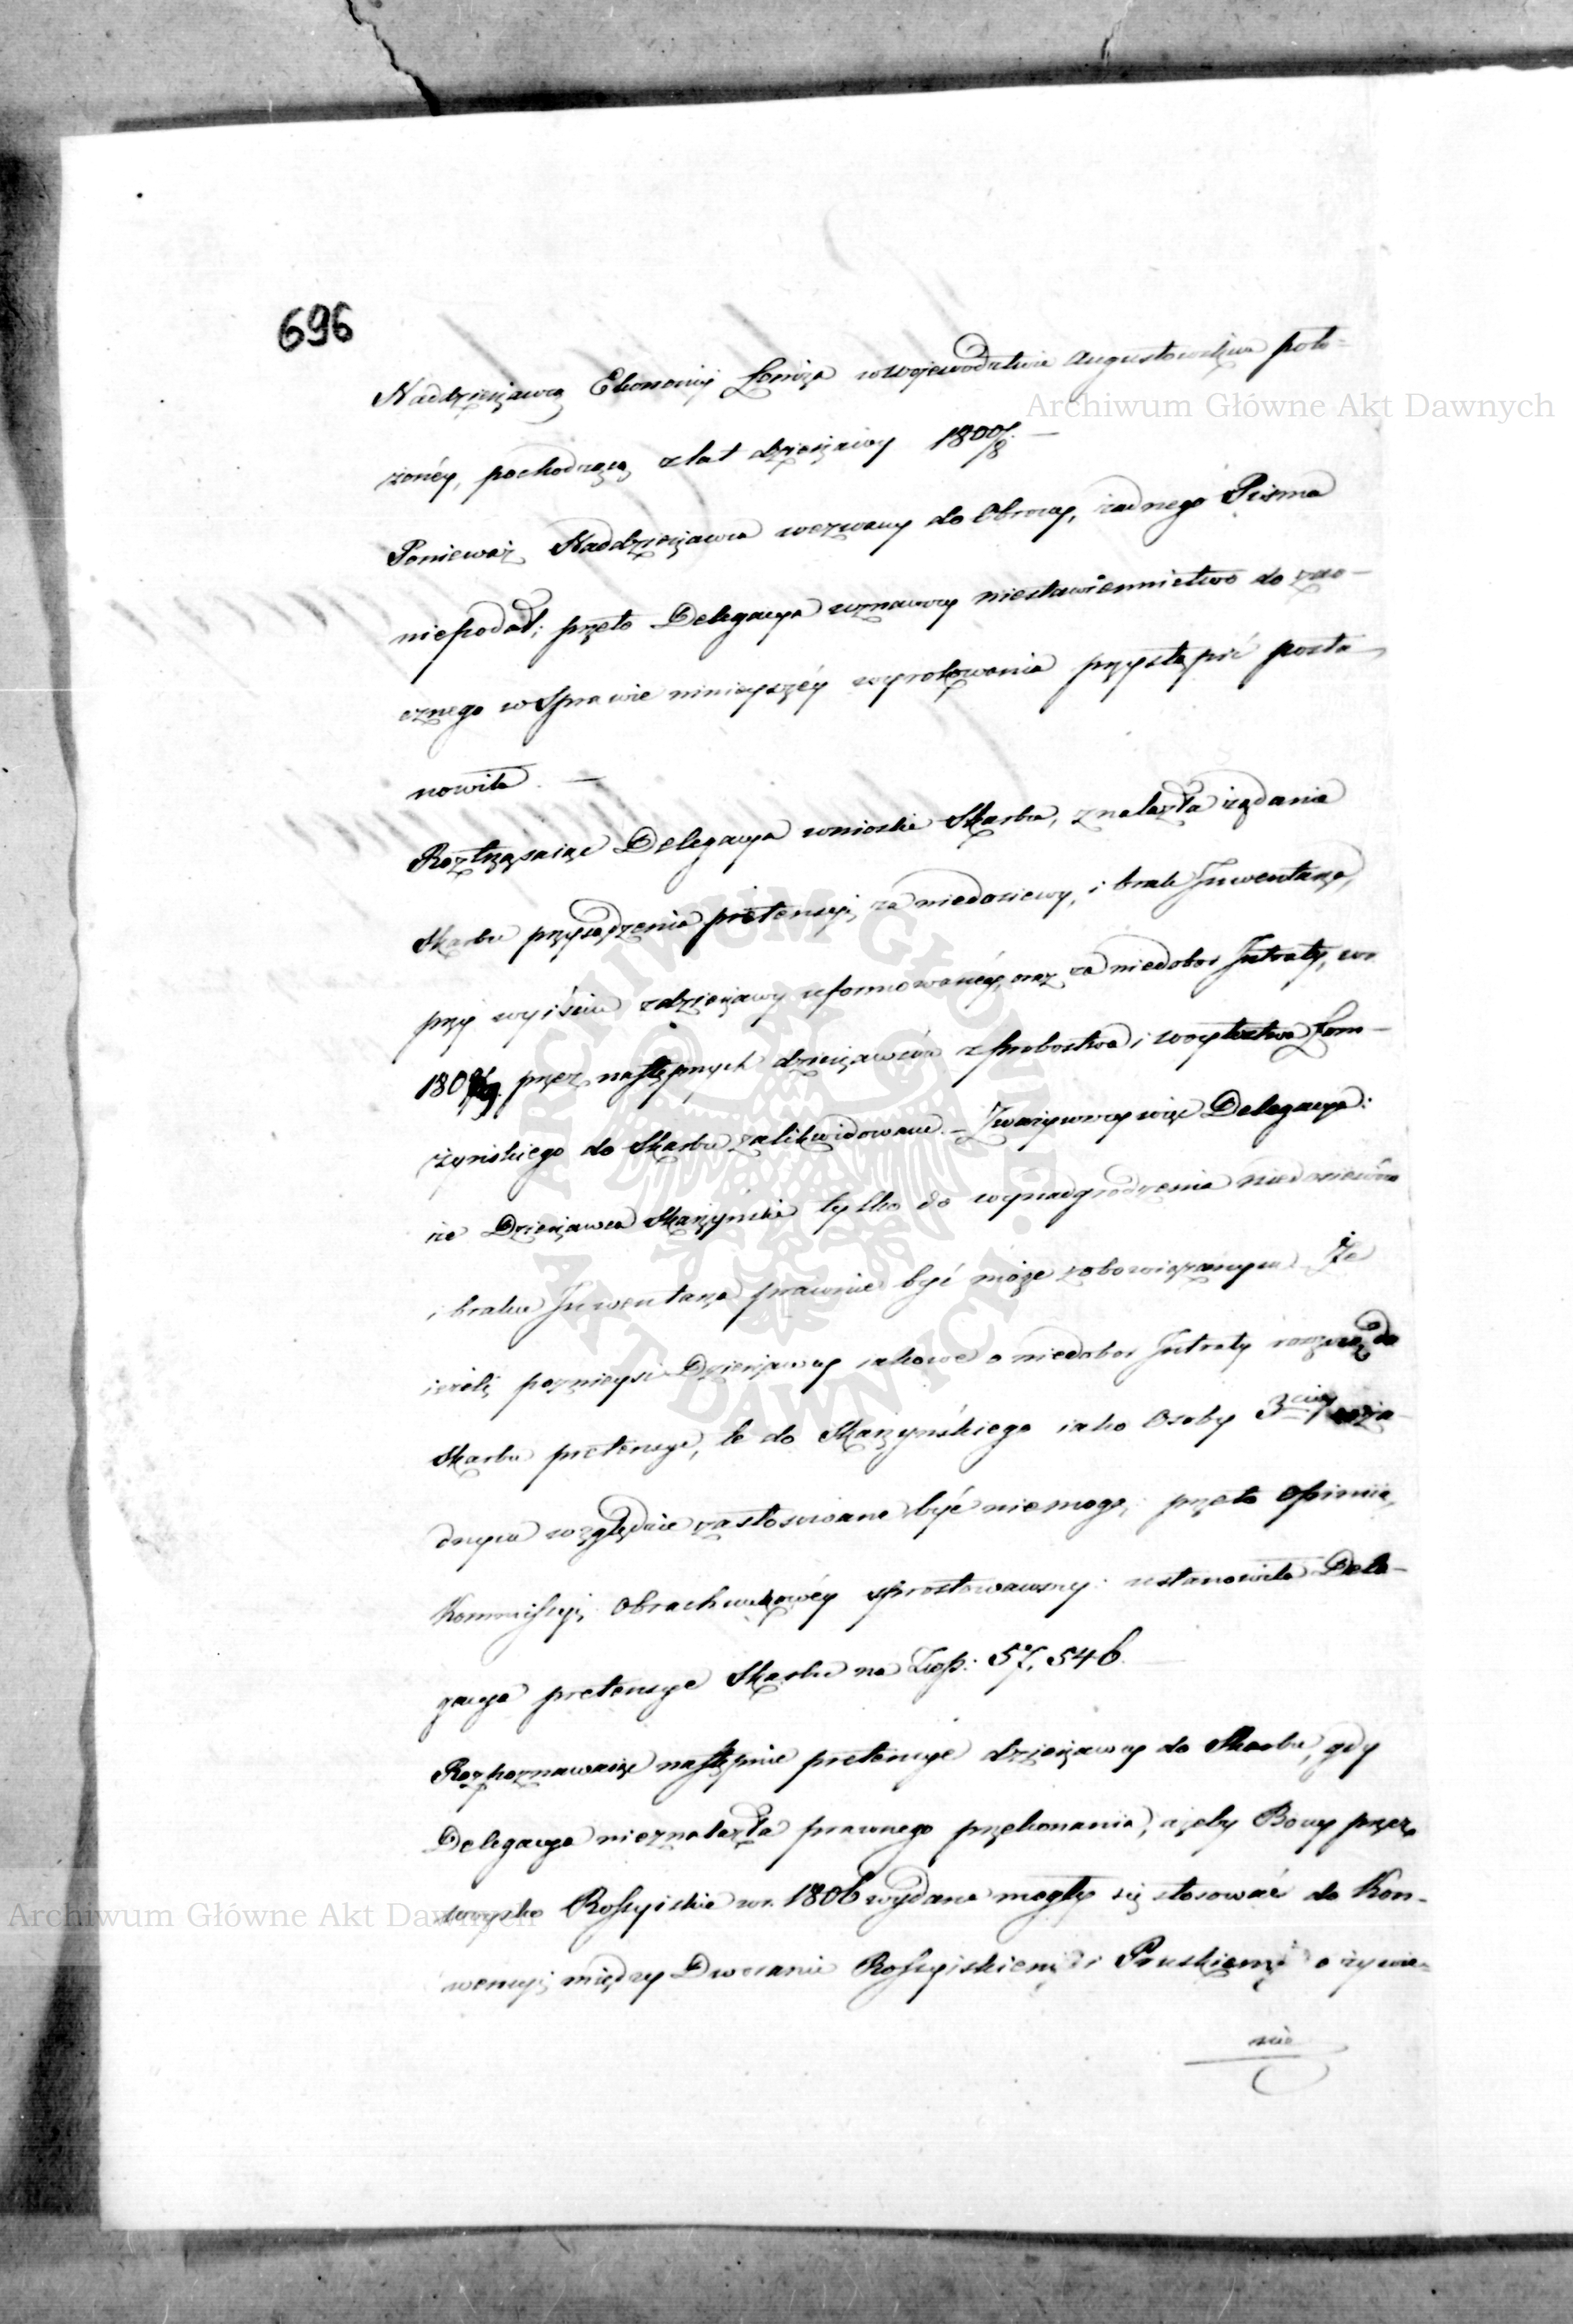 696
Naddzierżawcą Ekonomij Łomża w Wojewodztwie Augustowskim poło=
żonéy, pochodzącą z lat dzierżawy 1800/8. —
Ponieważ Naddzierżawca wezwany do Obrony, żadnego Pisma
niepodał; przeto Delegacya uznawszy niestawiennictwo do zao-
cznego w Sprawie ninieyszéy wyrokowania przystąpić posta-
nowiła. —
Roztrząsaiąc Delegacya wnioski Skarbu, znalazła żądania
Skarbu przysądzenia pretensyi, za niedosiewy, i brak Inwentarza,
przy wyiściu z dzierżawy uformowanéy, oraz za niedobor Intraty, w r.
180 przez następnych dzierżawców z probostwa i woytostwa Łom-
żyńskiego do Skarbu zalikwidowane. — Zważywszy więc Delegacya:
że Dzierżawca Skarżyński tylko do wynadgrodzenia niedosiewów
i braku Inwentarza prawnie być może zobowiązanym — Że
ieżeli poznieysi Dzierżawcy iakowe o niedobor Intraty roszczą do
Skarbu pretensye, te do Skarżyńskiego iako Osoby 3ciéy w ża-
dnym względzie zastosowane być niemogą; przeto Opinią
Kommissyi Obrachunkowéy sprostowawszy: ustanowiła Dele-
gacya pretensye Skarbu na Złp: 57,546. —
Rozpoznawaiąc następnie pretensye dzierżawcy do Skarbu, gdy
Delegacya nieznalazła prawnego przekonania, ażeby Bony przez
woysko Rossyiskie w r. 1806 wydane mogły się stosować do Kon-
wencyi między Dworami Rossyiskiem i Pruskiem o żywie=
nie
Archiwum Główne Akt Dawnych
Archiwum Główne Akt Dawnych
ARCHIWUM GŁÓWNE AKT DAWNYCH